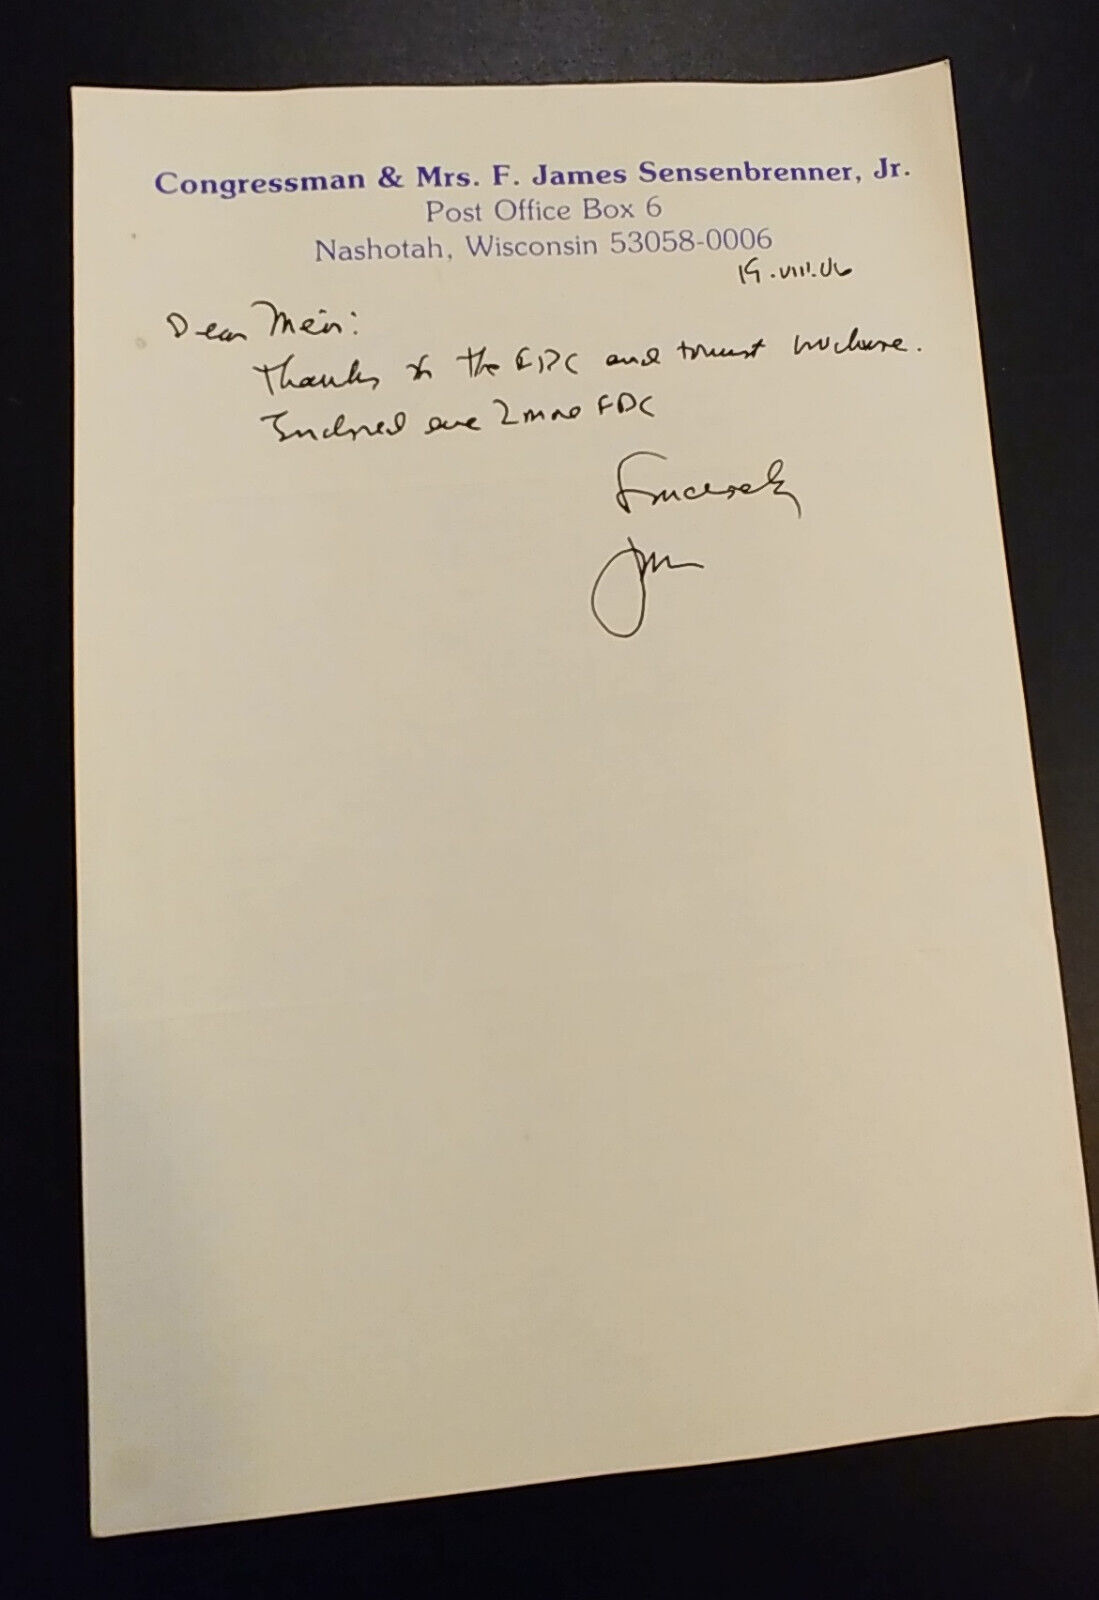 Congressman & Mrs. F. James Sensenbrenner, Jr.
Post Office Box 6
Nashotah, Wisconsin 53058-0006
19.VIII.06
Dear Meir:
Thanks for the FDC and tourist brochure.
Enclosed are 2 more FDC
Sincerely
Jim